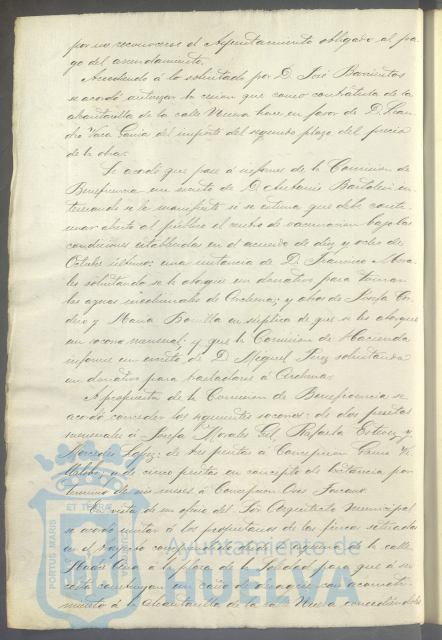 por no reconocerse el Ayuntamiento obligado al pa-
go del arrendamiento.
Accediendo á lo solicitado por D. José Barrientos
se acordó autorizar la cesion que como contratista de la
alcantarilla de la calle Nueva hace en favor de D.
dro Vaca Garcia del importe del segundo plazo del precio
de la obra.
Se acordó que pase á informe de la Comision de
Beneficencia un escrito de D. Antonio in-
teresando se le manifieste si se estima que debe conti-
nuar abierto al público el centro de vacunacion bajo las
condiciones establecidas en el acuerdo de diez y ocho de
Octubre último; una instancia de D. Francisco Mora-
les solicitando se le otorgue un donativo para tomar
las aguas medicinales de Archena; y otras de Josefa
y Maria Bonilla en súplica de que se les otorgue
un socorro mensual; y que la Comision de Hacienda
informe un escrito de D. Miguel solicitando
un donativo para trasladarse á Archena.
A propuesta de la Comision de Beneficencia se
acordó conceder los siguientes socorros: de dos pesetas
mensuales á Josefa Morales Gil, Rafaela y
Mercedes Lopez; de tres pesetas á Concepcion
y de cinco pesetas en concepto de lactancia por
término de seis meses á Concepcion
En vista de un oficio del Sor Arquitecto Municipal
se acordó invitar á los propietarios de las fincas situadas
en el trayecto comprendido desde la de la calle
Madre Ana á la plaza de la Soledad para que á su
costa construyan un caño de desagüe con acometi-
miento á la alcantarilla de la calle Nueva
ET TERRÆ
PORTUS MARIS
Ayuntamiento de
HUELVA